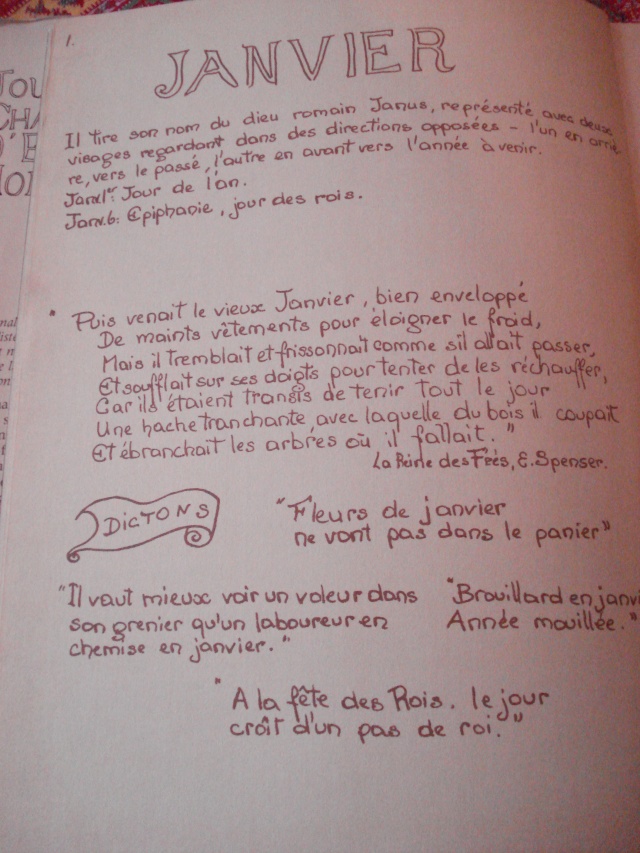 1.
JANVIER
Il tire son nom du dieu romain Janus, représenté avec deux
visages regardant dans des directions opposées - l'un en arriè
re, vers le passé, l'autre en avant vers l'année à venir.
Janv.1er: Jour de l'an.
Janv.6: Epiphanie, jour des rois.
" Puis venait le vieux Janvier, bien enveloppé
De maints vêtements pour éloigner le froid,
Mais il tremblait et frissonnait comme s'il allait passer,
Et soufflait sur ses doigts pour tenter de les réchauffer,
Car ils étaient transis de tenir tout le jour
Une hache tranchante, avec laquelle du bois il coupait
Et ébranchait les arbres où il fallait."
La Reine des Fées, E. Spenser.
DICTONS
"Fleurs de janvier
ne vont pas dans le panier"
"Il vaut mieux voir un voleur dans
son grenier qu'un laboureur en
chemise en janvier."
"Brouillard en janvi
Année mouillée."
"A la fête des Rois. le jour
croît d'un pas de roi."